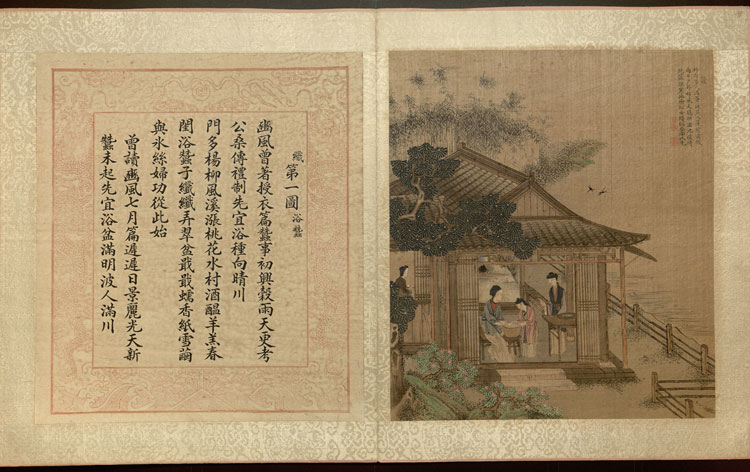 織 第一圖 浴蠶
豳風曾著授衣篇蠶事初興穀雨天更考
公桑傳禮制先宜浴種向晴川
門多楊柳風溪漲桃花水村酒醞羊羔春
閨浴蠶子纖纖弄翠盆戢戢蠕香紙雪繭
與氷絲婦功從此始
曾讀豳風七月篇遲遲日景麗光天新
蠶未起先宜浴盆滿明波人滿川